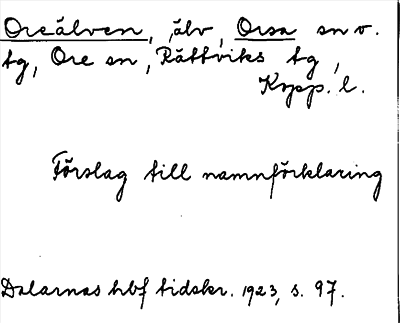 Oreälven, älv, Orsa sn o.
tg, Ore sn, Rättviks tg,
Kopp. l.
Förslag till namnförklaring
Dalarnas hbf tidskr. 1923, s. 97.